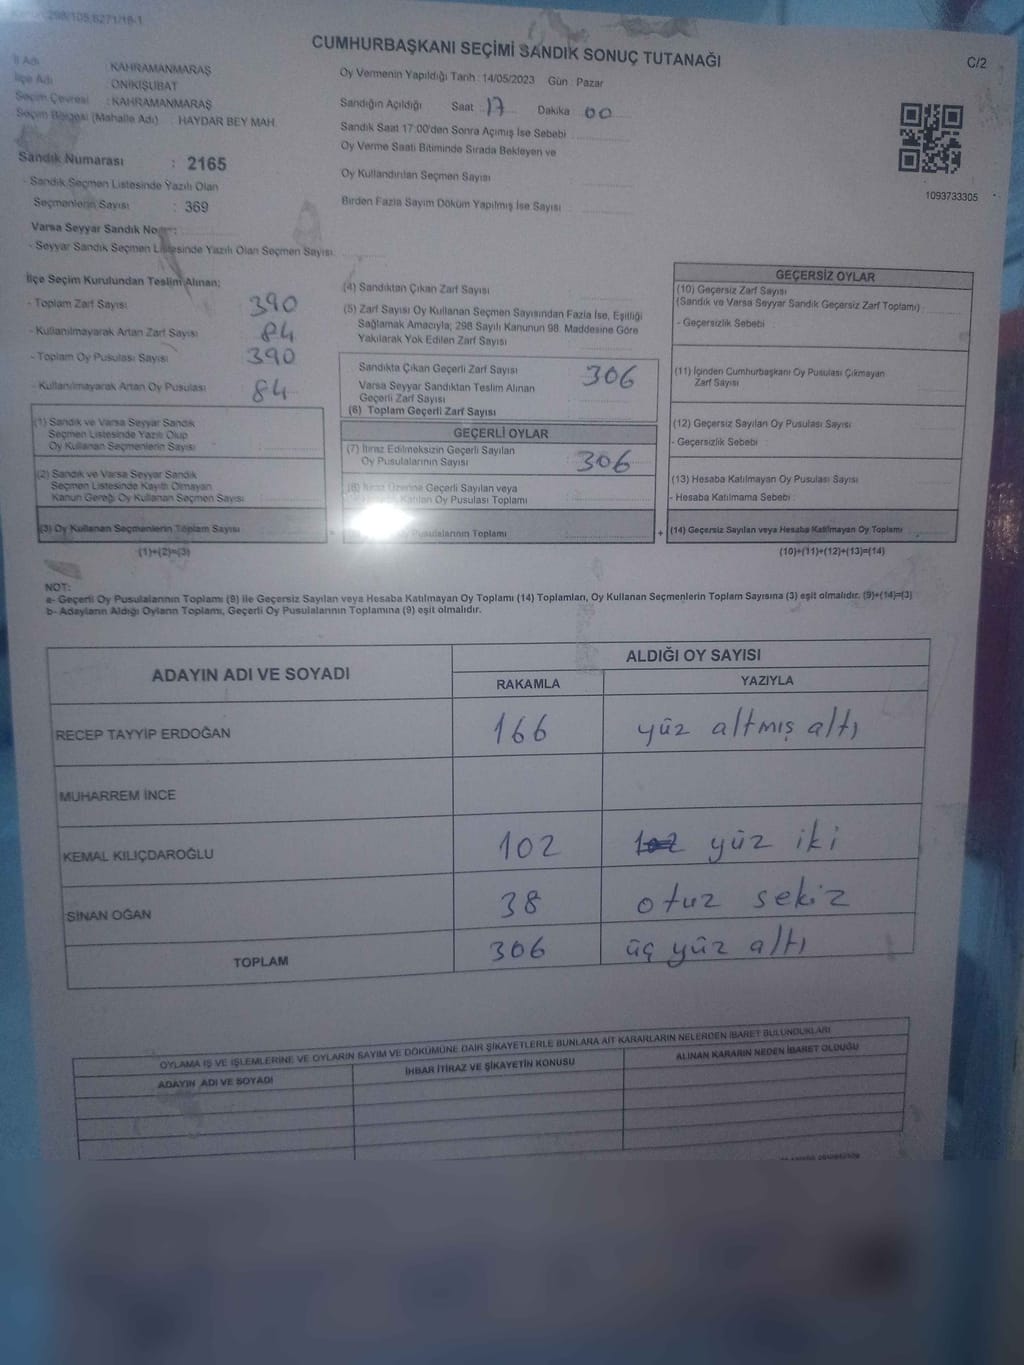 298/105,6271/16-1
CUMHURBAŞKANI SEÇİMİ SANDIK SONUÇ TUTANAĞI
C/2
İl Adı : KAHRAMANMARAŞ
İlçe Adı : ONİKİŞUBAT
Seçim Çevresi : KAHRAMANMARAŞ
Seçim Bölgesi (Mahalle Adı) : HAYDAR BEY MAH.
Sandık Numarası : 2165
- Sandık Seçmen Listesinde Yazılı Olan
Seçmenlerin Sayısı : 369
Varsa Seyyar Sandık No
- Seyyar Sandık Seçmen Listesinde Yazılı Olan Seçmen Sayısı:
Oy Vermenin Yapıldığı Tarih : 14/05/2023 Gün : Pazar
Sandığın Açıldığı Saat 17 Dakika 00
Sandık Saat 17:00'den Sonra Açımış İse Sebebi
Oy Verme Saati Bitiminde Sırada Bekleyen ve
Oy Kullandırılan Seçmen Sayısı
Birden Fazla Sayım Döküm Yapılmış İse Sayısı
1093733305
İlçe Seçim Kurulundan Teslim Alınan;
- Toplam Zarf Sayısı 390
- Kullanılmayarak Artan Zarf Sayısı 84
- Toplam Oy Pusulası Sayısı 390
- Kullanılmayarak Artan Oy Pusulası 84
(1) Sandık ve Varsa Seyyar Sandık
Seçmen Listesinde Yazılı Olup
Oy Kullanan Seçmenlerin Sayısı
(2) Sandık ve Varsa Seyyar Sandık
Seçmen Listesinde Kayıtlı Olmayan
Kanun Gereği Oy Kullanan Seçmen Sayısı
(3) Oy Kullanan Seçmenlerin Toplam Sayısı
(1)+(2)=(3)
(4) Sandıktan Çıkan Zarf Sayısı
(5) Zarf Sayısı Oy Kullanan Seçmen Sayısından Fazla İse, Eşitliği
Sağlamak Amacıyla; 298 Sayılı Kanunun 98. Maddesine Göre
Yakılarak Yok Edilen Zarf Sayısı
Sandıkta Çıkan Geçerli Zarf Sayısı 306
Varsa Seyyar Sandıktan Teslim Alınan
Geçerli Zarf Sayısı
(6) Toplam Geçerli Zarf Sayısı
GEÇERLİ OYLAR
(7) İtiraz Edilmeksizin Geçerli Sayılan
Oy Pusulalarının Sayısı 306
(8) İtiraz Üzerine Geçerli Sayılan veya
Katılan Oy Pusulası Toplamı
Oy Pusulalarının Toplamı
GEÇERSİZ OYLAR
(10) Geçersiz Zarf Sayısı
(Sandık ve Varsa Seyyar Sandık Geçersiz Zarf Toplamı)
- Geçersizlik Sebebi
(11) İçinden Cumhurbaşkanı Oy Pusulası Çıkmayan
Zarf Sayısı
(12) Geçersiz Sayılan Oy Pusulası Sayısı
- Geçersizlik Sebebi :
(13) Hesaba Katılmayan Oy Pusulası Sayısı
- Hesaba Katılmama Sebebi :
+ (14) Geçersiz Sayılan veya Hesaba Katılmayan Oy Toplamı
(10)+(11)+(12)+(13)=(14)
NOT:
a- Geçerli Oy Pusulalarının Toplamı (9) ile Geçersiz Sayılan veya Hesaba Katılmayan Oy Toplamı (14) Toplamları, Oy Kullanan Seçmenlerin Toplam Sayısına (3) eşit olmalıdır. (9)+(14)=(3)
b- Adayların Aldığı Oyların Toplamı, Geçerli Oy Pusulalarının Toplamına (9) eşit olmalıdır.
ADAYIN ADI VE SOYADI ALDIĞI OY SAYISI
RAKAMLA YAZIYLA
RECEP TAYYİP ERDOĞAN 166 yüz altmış altı
MUHARREM İNCE
KEMAL KILIÇDAROĞLU 102 yüz iki
SİNAN OĞAN 38 otuz sekiz
TOPLAM 306 üç yüz altı
OYLAMA İŞ VE İŞLEMLERİNE VE OYLARIN SAYIM VE DÖKÜMÜNE DAİR ŞİKAYETLERLE BUNLARA AİT KARARLARIN NELERDEN İBARET BULUNDUKLARI
ADAYIN ADI VE SOYADI İHBAR İTİRAZ VE ŞİKAYETİN KONUSU ALINAN KARARIN NEDEN İBARET OLDUĞU